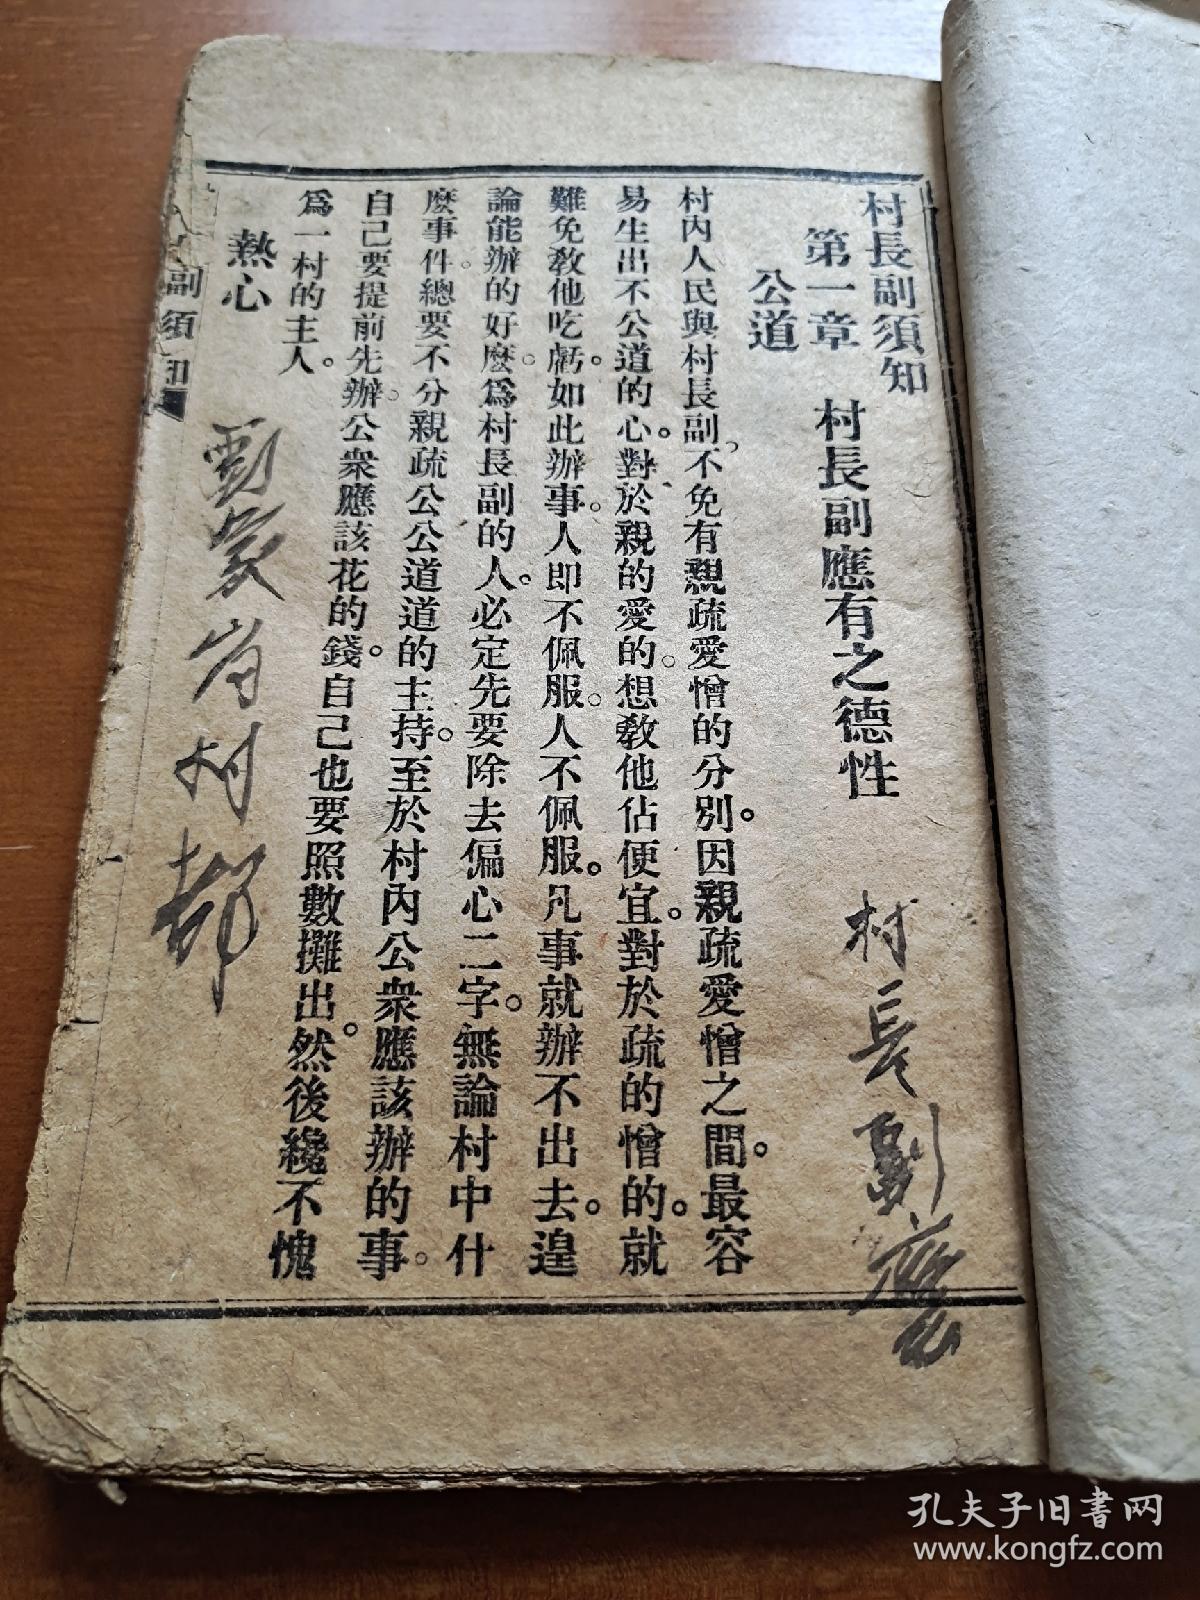 村長副須知
第一章　村長副應有之德性
公道
村內人民與村長副、不免有親疏愛憎的分別。因親疏愛憎之間。最容
易生出不公道的心。對於親的愛的。想教他佔便宜。對於疏的憎的。就
難免教他吃虧。如此辦事。人即不佩服。人不佩服。凡事就辦不出去。遑
論能辦的好麽。爲村長副的人。必定先要除去偏心二字。無論村中什
麽事件。總要不分親疏公公道道的主持。至於村內公衆應該辦的事。
自己要提前先辦。公衆應該花的錢。自己也要照數攤出。然後纔不愧
爲一村的主人。
熱心
村長副應
副須知
孔夫子旧书网
www.kongfz.com